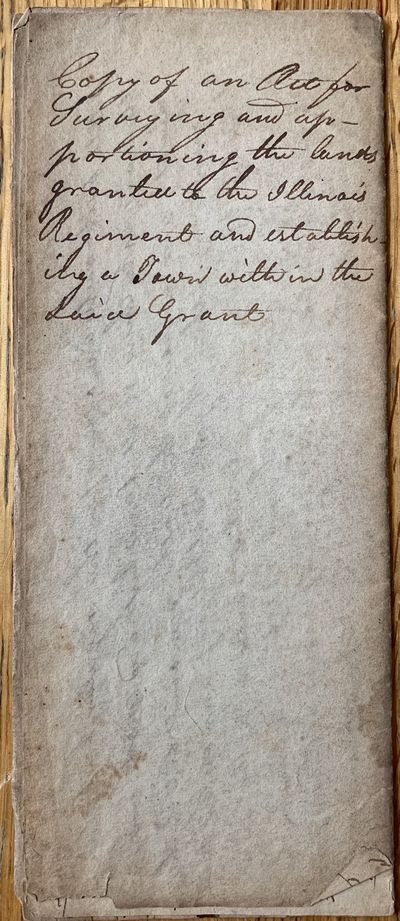 Copy of an Act for
Surveying and ap-
portioning the lands
granted to the Illinois
Regiment and establish-
ing a Town within the
said Grant